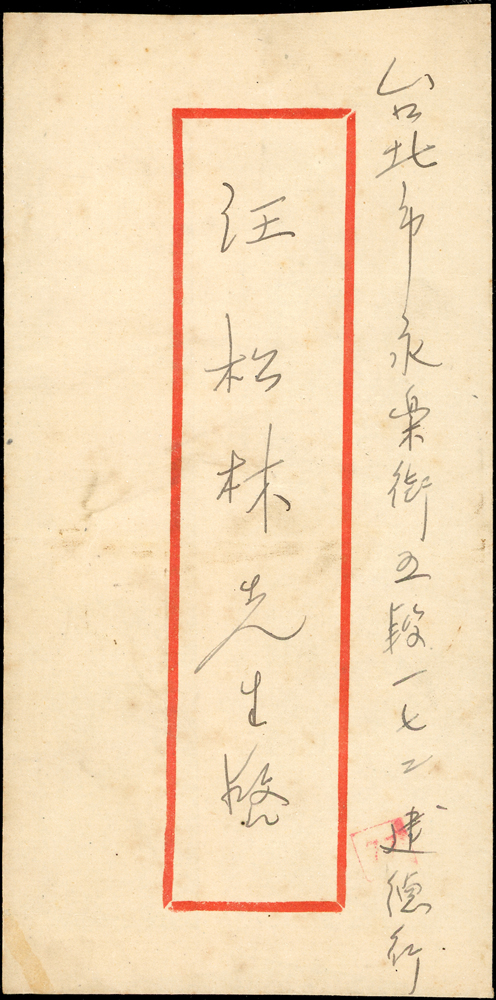 台北市永樂街五段一七二建德行
汪松林先生啟